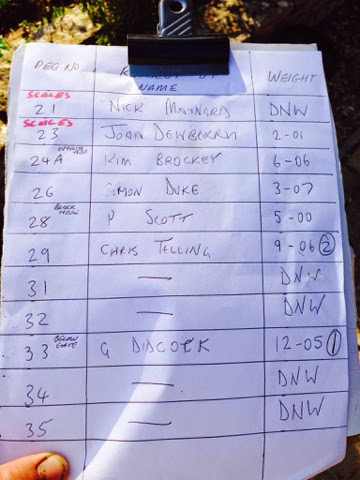 PEG NO NAME WEIGHT
SCALES
21 NICK MAYNARD DNW
SCALES
23 JOHN DEWBERRY 2-01
24A KIM BROCKEY 6-06
26 SIMON DUKE 3-07
28 P SCOTT 5-00
29 CHRIS TELLING 9-06 2
31 — DNW
32 — DNW
33 BELOW GATE G DIDCOCK 12-05 1
34 — DNW
35 — DNW